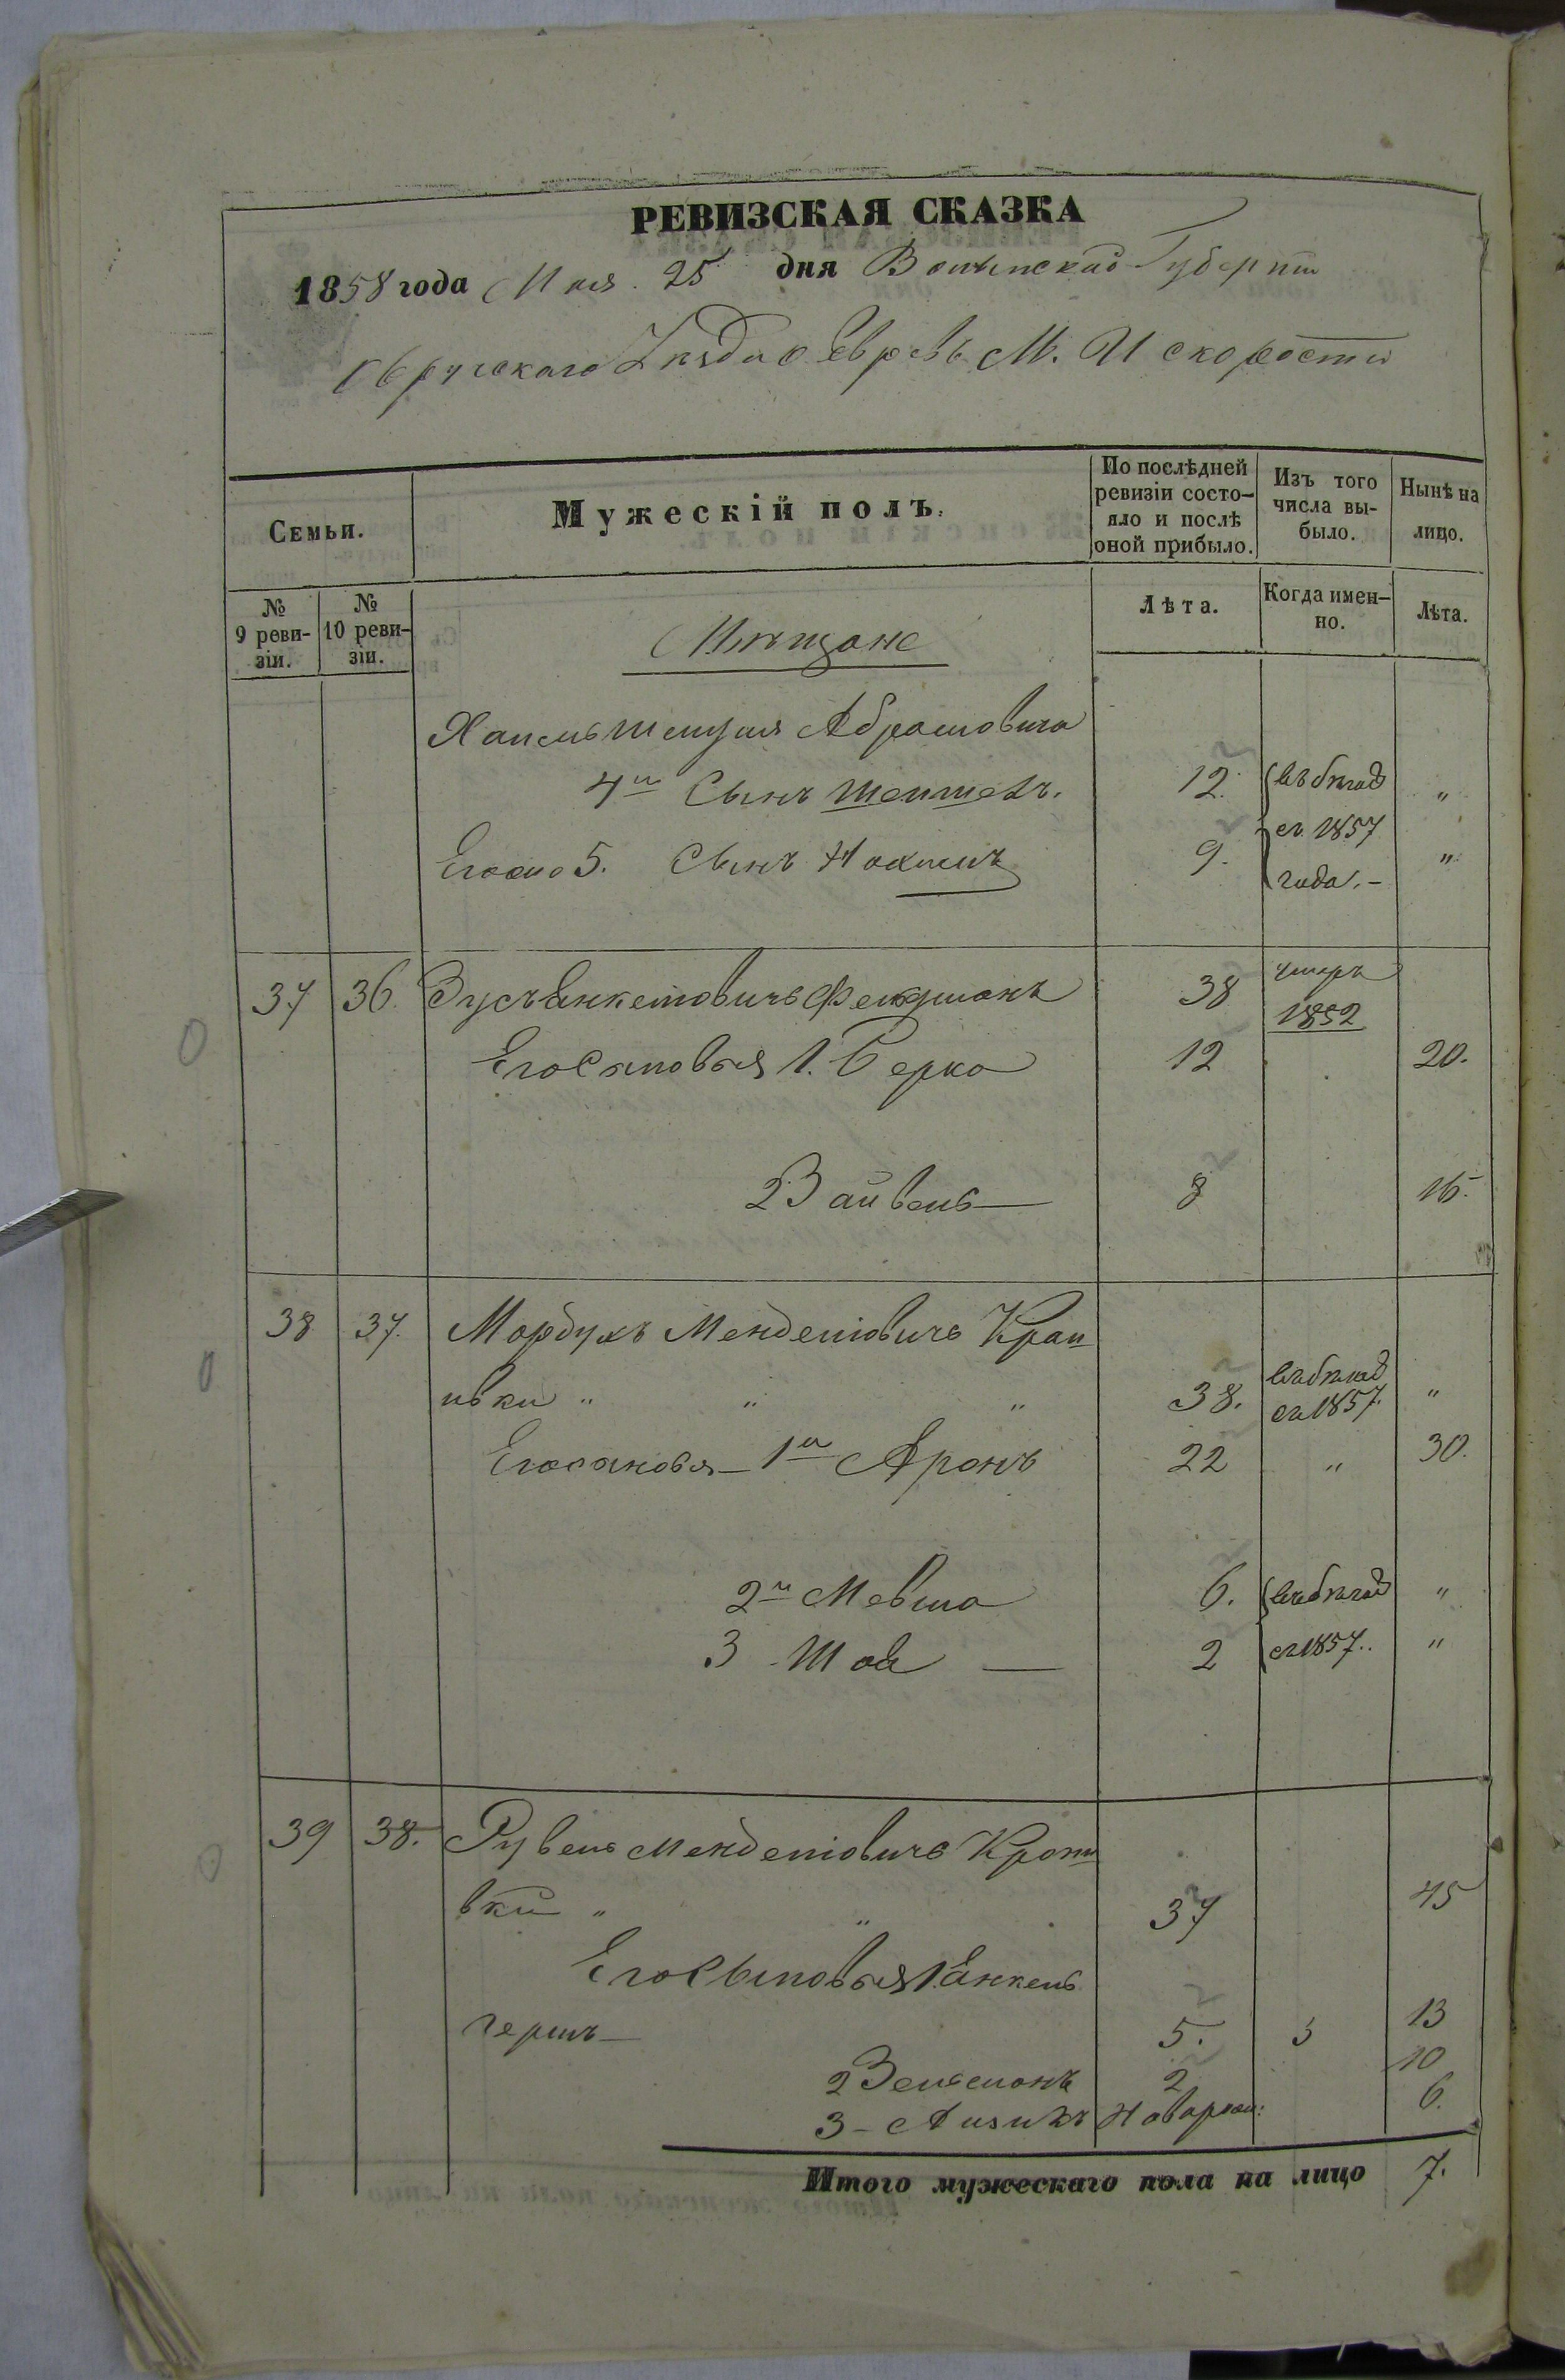 РЕВИЗСКАЯ СКАЗКА
1858 года Мая 25 дня Волынской Губернии
Овручскаго Уѣзда о Евреѣ М. Искорости
Семьи.
Мужескій полъ.
По послѣдней ревизіи состо-
яло и послѣ
оной прибыло.
Изъ того
числа вы-
было.
Нынѣ на
лицо.
№
9 реви-
зіи.
№
10 реви-
зіи.
Мѣщане
Лѣта.
Когда имен-
но.
Лѣта.
Абрамовича
4й Сынъ 12. въ бѣгах "
съ 1857
Егоже 5. Сынъ Нахимъ 9. года. - "
37 36. Зусь Янкелювичъ Фельдманъ 38 умеръ
1852
Его Сыновья 1. Берко 12 20.
2 Зайвель — 8 16.
38 37. Мордухъ Менделіовичъ Крап
ивки " " " 38. въ бѣгах съ 1857. "
Его сыновья — 1й Аронъ 22 " 30.
2й Мевша 6. въ бѣгах "
3 Шоа — 2 съ 1857.. "
39 38. Рувель Менделіовичъ Кропи
вки " " 37 45
Его Сыновья 1. Янкель
Герш— 5. 13
2 Зельманъ 2 10
3 - Аизикъ Новорож: 6.
Итого мужескаго пола на лицо 7.